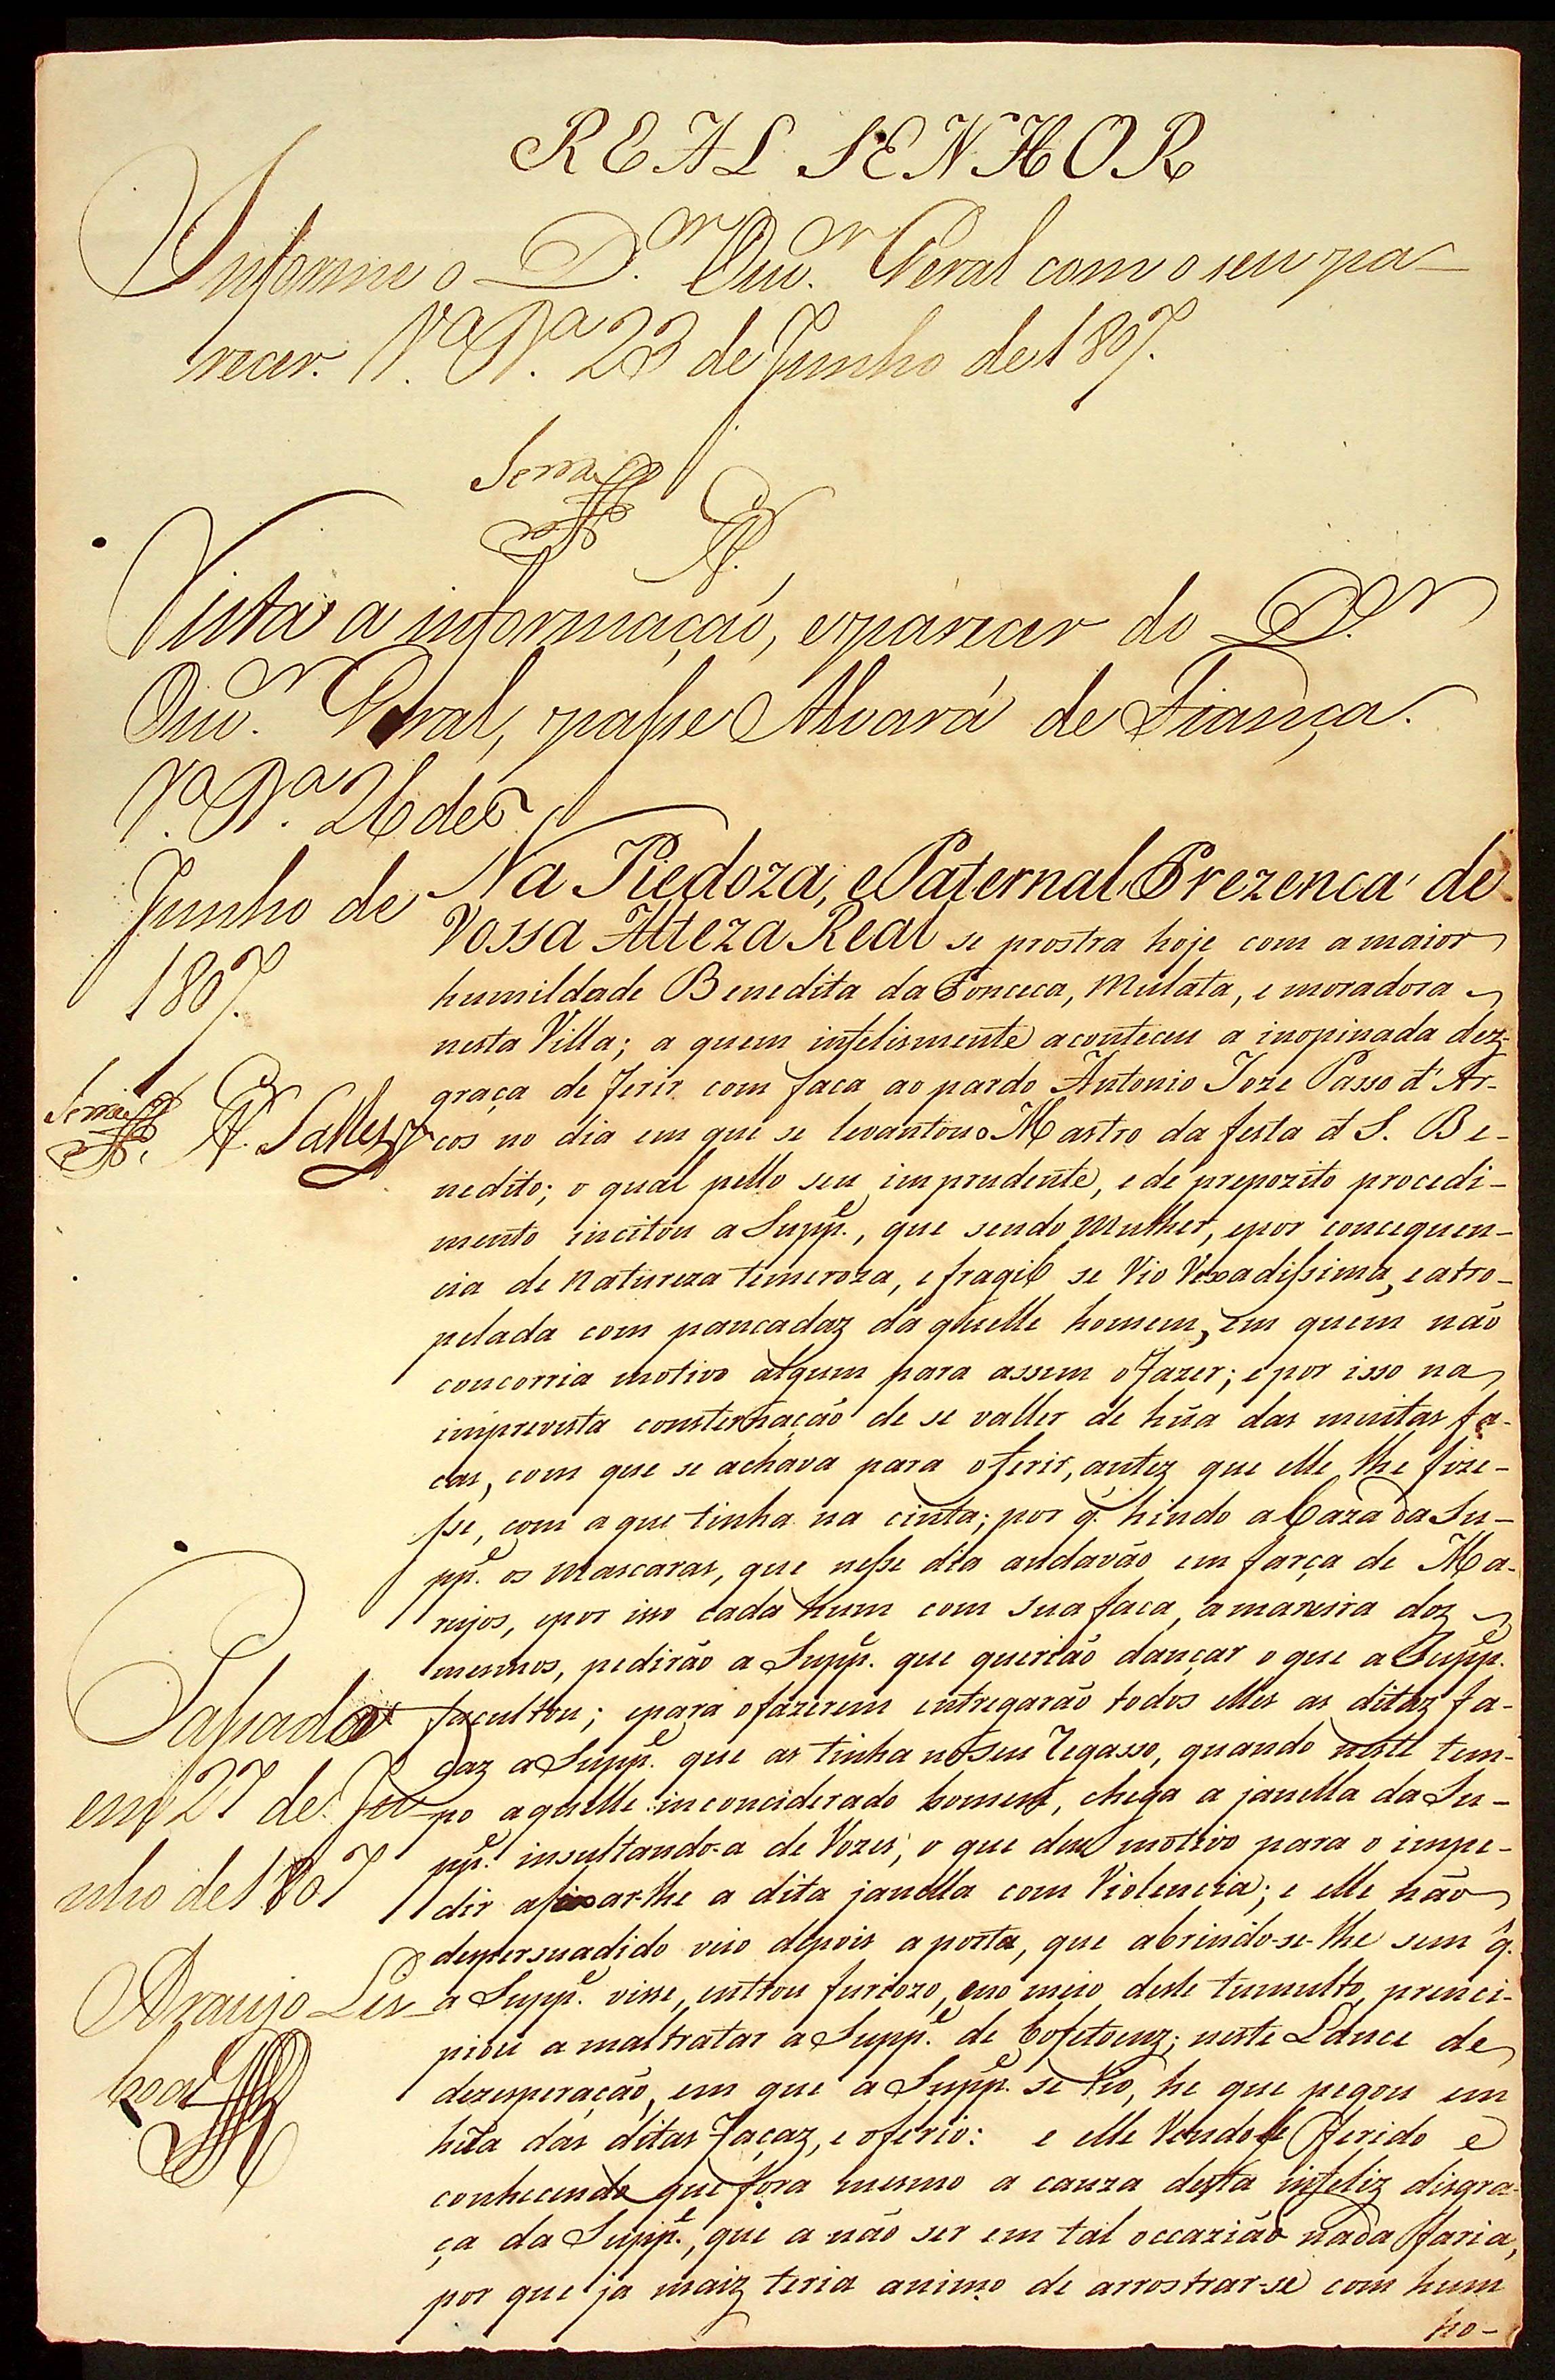 REAL SENHOR
Informe o D.or Ouv.or Geral com o seu pa-
recer. V.a R.a 23 de Junho de 1807.
Vista a informação, e parecer do D.or
Ouv.or Geral, passe Alvará de Fiança.
V.a R.a 26 de
Junho de
1807.
Salles
Na Piedoza, e Paternal Prezenca de
Vossa Alteza Real se prostra hoje com a maior
humildade Benedita da Fonceca, mulata, e moradora
nesta Villa; a quem infelismente aconteceu a inopinada dez-
graça de ferir com faca ao pardo Antonio Joze Passo d'Ar-
cos no dia em que se levantou o Mastro da festa d S. Be-
nedito; o qual pello seu imprudente, e de prepozito procedi-
mento incitou a Supp.e, que sendo mulher, e por concequen-
cia de natureza temeroza, e fragil se vio vexadissima, e atro-
pelada com pancadaz daquelle homem, em quem não
concorria motivo algum para assim o fazer; e por isso na
imprevista consternação de se valler de hũa das muitas fa-
cas, com que se achava para o ferir, antez que elle lhe fize-
sse, com a que tinha na cinta; por q. hindo a Caza da Su-
pp.e os mascaras, que nesse dia andavão em farça de Ma-
rujos, e por isso cada hum com sua faca, a maneira doz
mesmos, pedirão a Supp.e que querião dançar o que a Supp.e
facultou; e para o fazerem entregarão todos elles as ditaz fa-
caz a Supp.e que as tinha no seu regasso, quando neste tem-
po aquelle inconciderado homem, chega a janella da Su-
pp.e insultando-a de vozes, o que deu motivo para o impe-
dir a fixar-lhe a dita janella com violencia; e elle não
despersuadido veio depois a porta, que abrindo-se-lhe sem q.
a Supp.e visse, entrou furiozo, e no meio deste tumulto, princi-
piou a maltratar a Supp.e de bofetoenz; neste Lance de
dezesperação, em que a Supp.e se vio, he que pegou em
hũa das ditas facaz, e o ferio: e elle vendo-se ferido e
conhecendo que fora mesmo a cauza desta infeliz disgra-
ça da Supp.e, que a não ser em tal occazião nada faria,
por que ja maiz teria animo de arrostrar-se com hum
ho-
Passado
em 27 de Ju-
nho de 1807
Araujo Lis-
boa